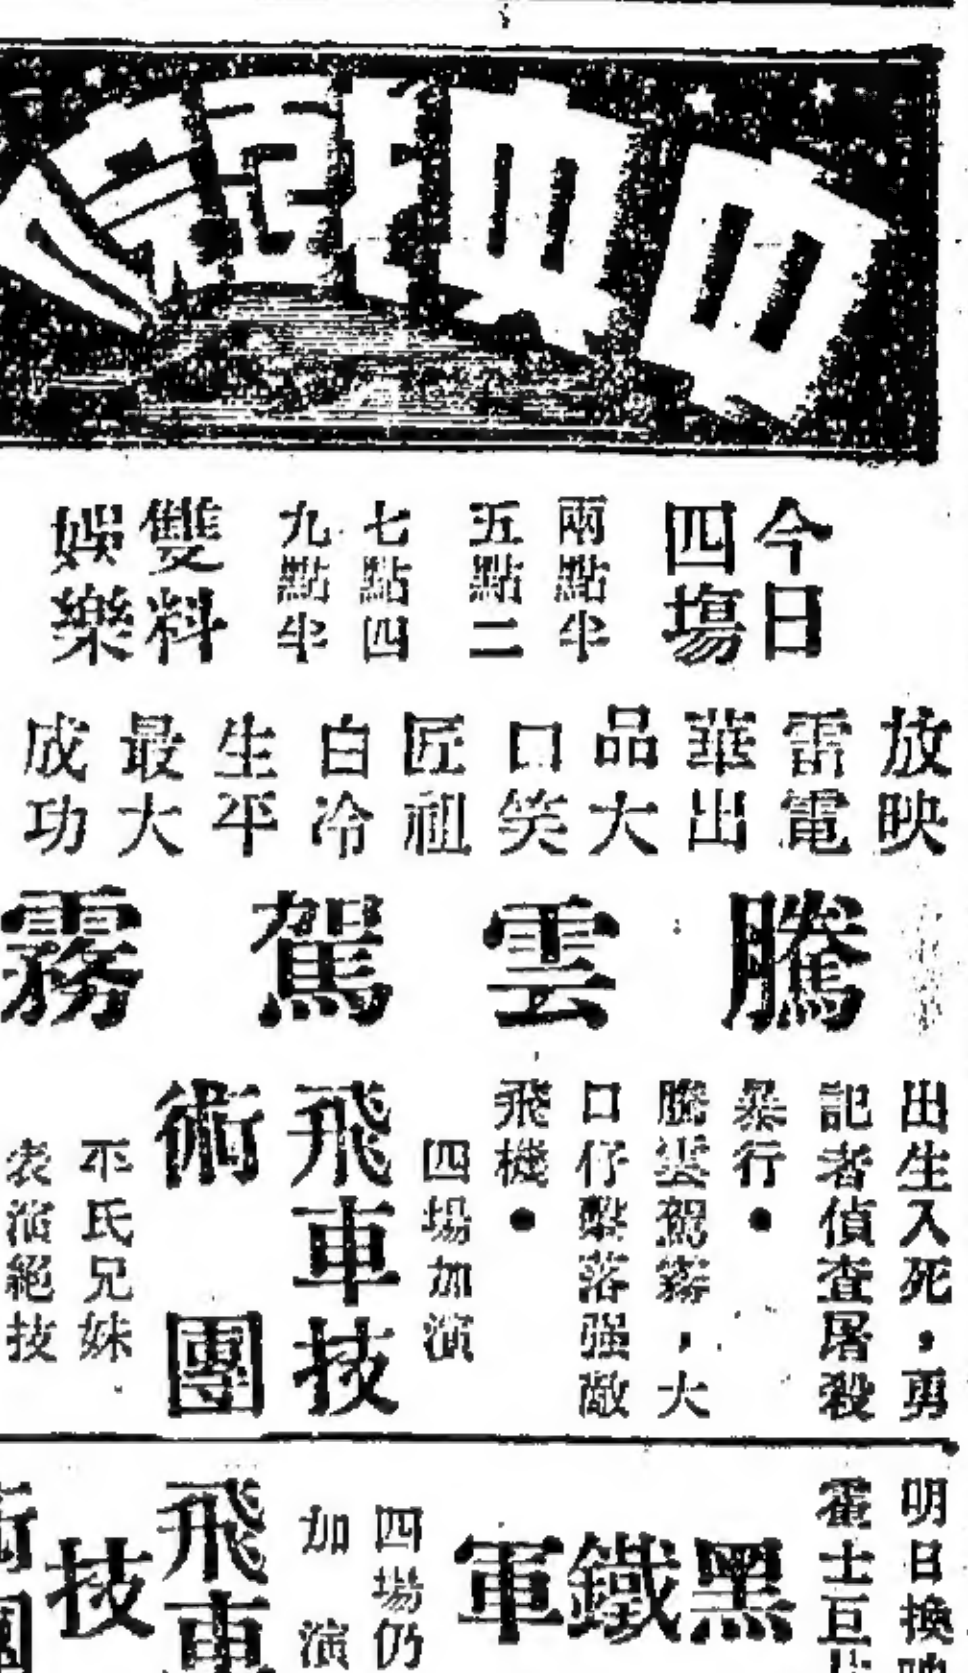 今日
四塲
兩點半
五點二
七點四
九點半
雙料
娛樂
放映
雷電
華出
品大
口笑
匠祖
白冷
生平
最大
成功
騰雲駕霧
出生入死，勇
記者偵查屠殺
暴行●
騰雲駕霧，大
口仔擊落强敵
飛機●
四場加演
飛車技
術團
丕氏兄妹
表演絕技
明日換映
霍士巨片
黑鐵軍
四場仍
加演
飛車
技
術團